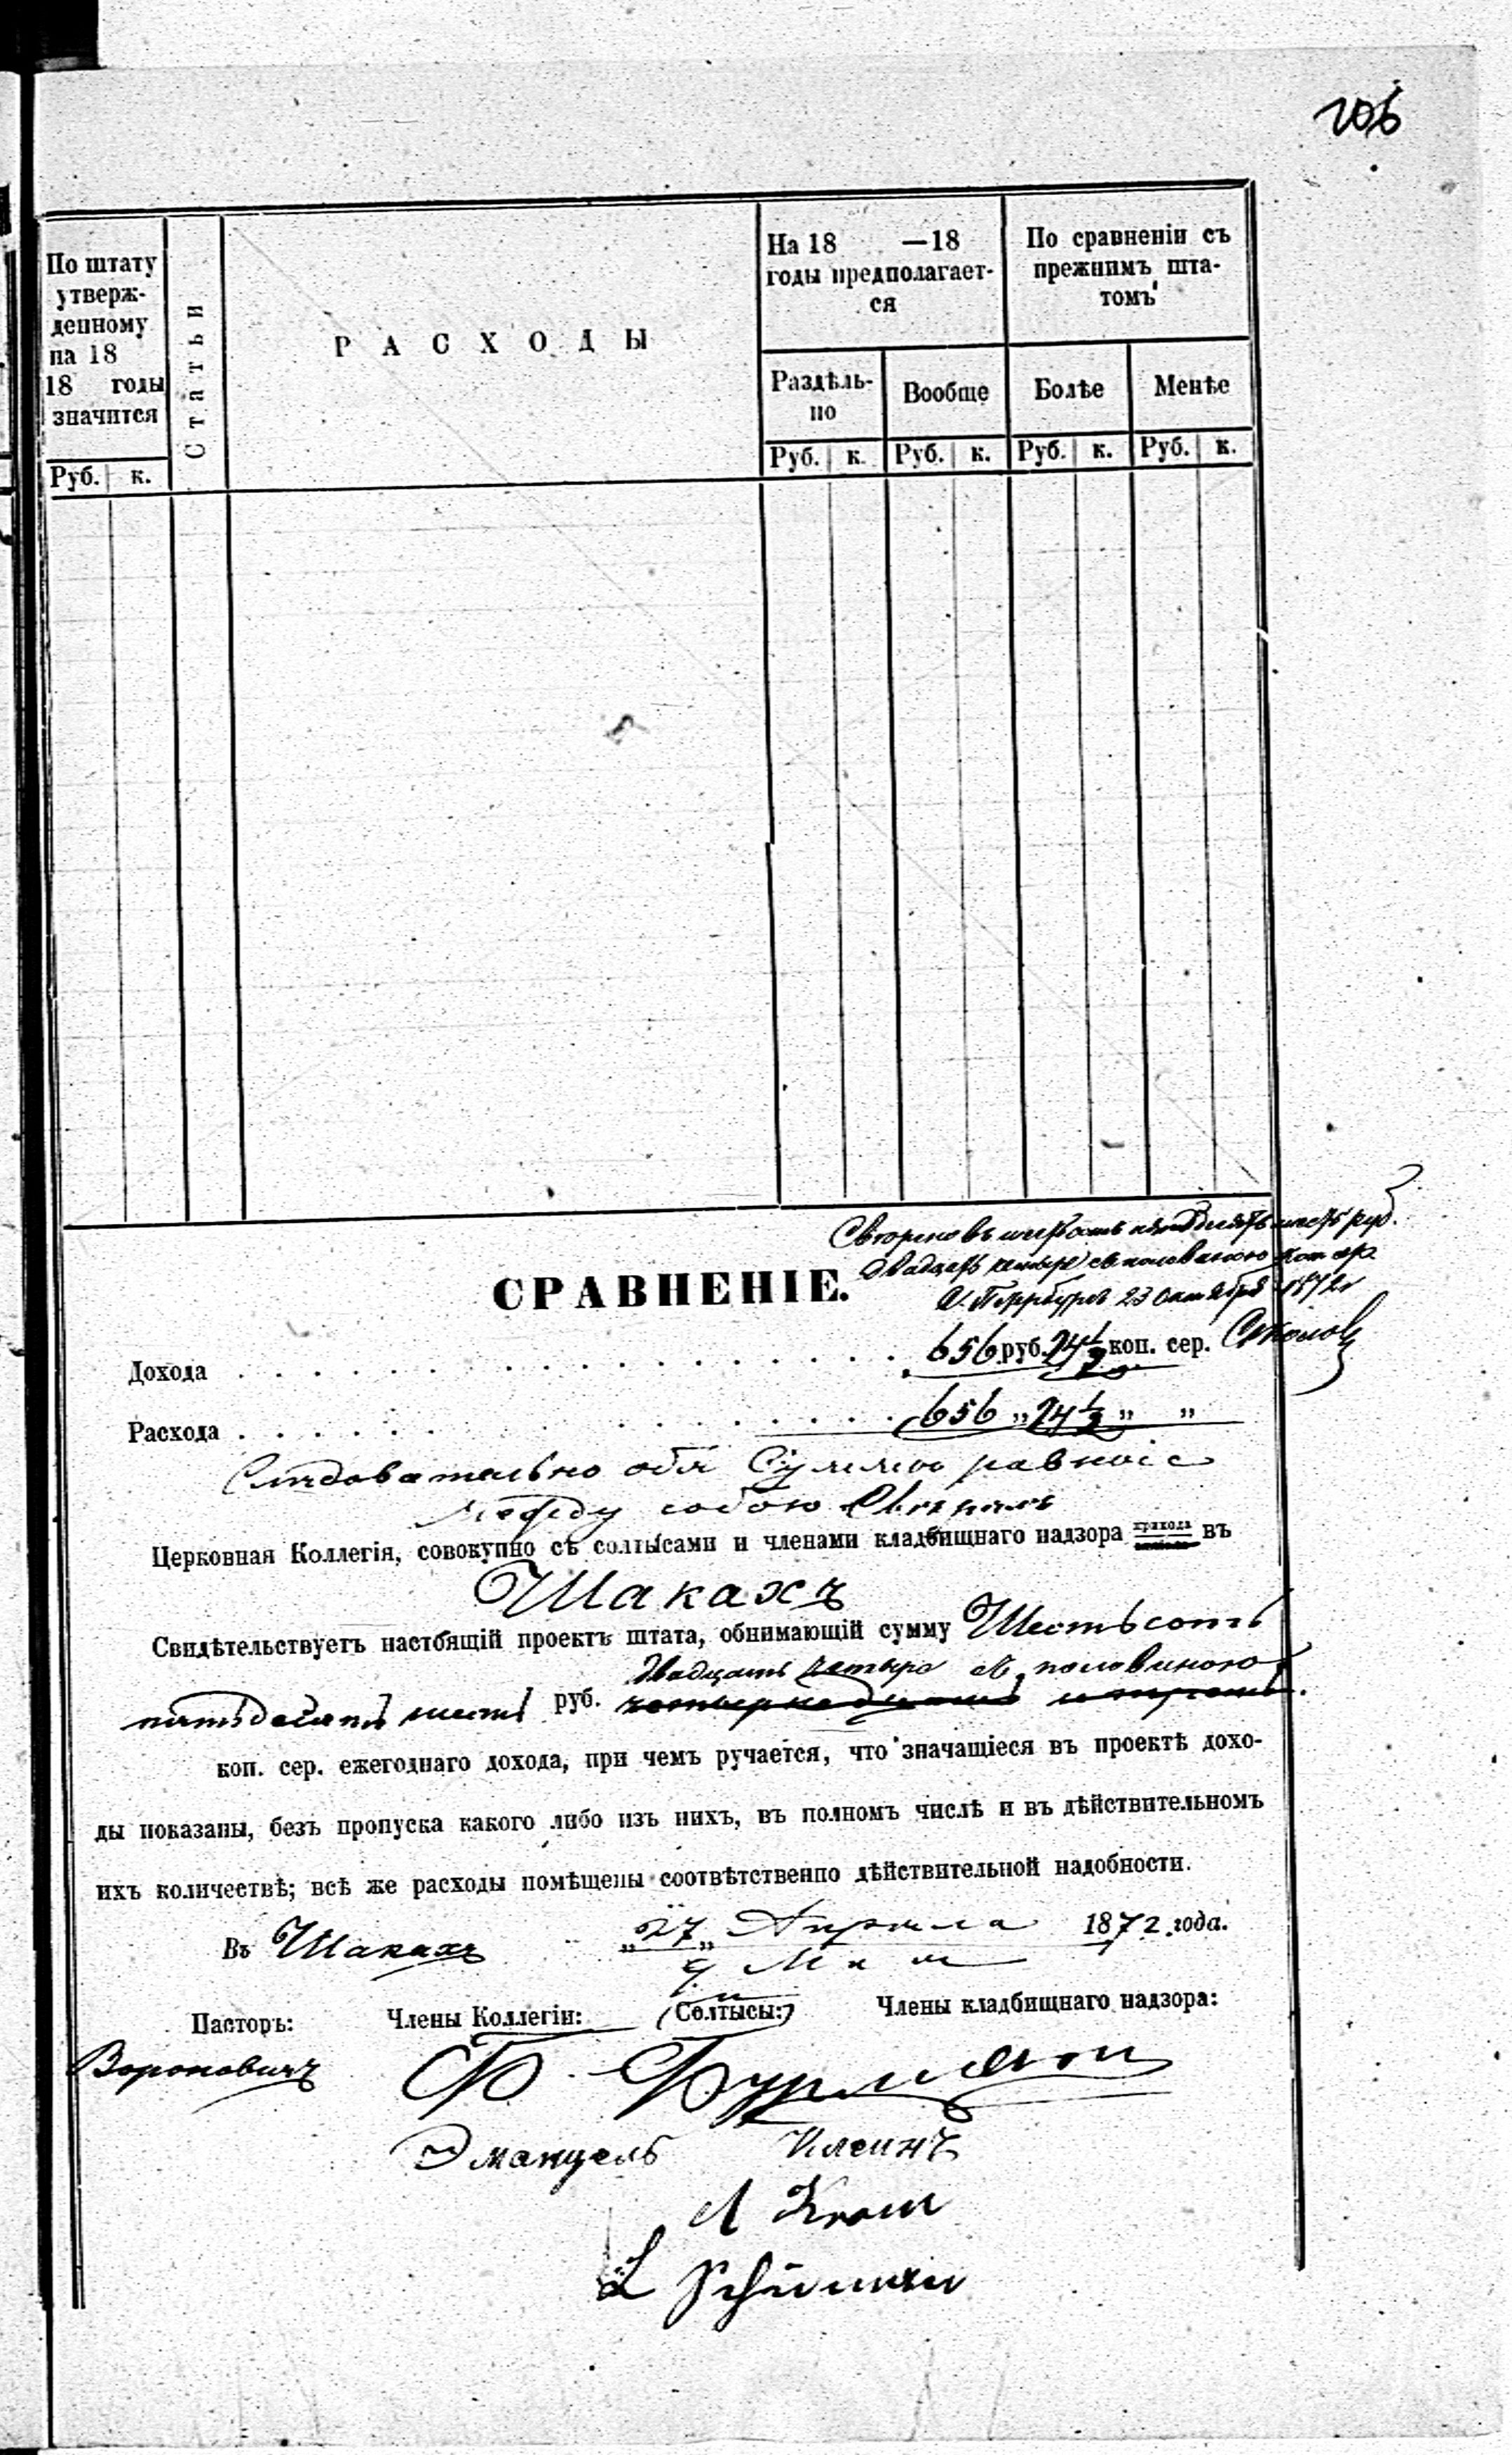 206
По штату
утверж-
денному
на 18
18 годы
значится
Статьи
РАСХОДЫ
На 18 —18
годы предполагает-
ся
По сравненіи съ
прежнимъ шта-
томъ
Раздѣль-
но
Вообще
Болѣе
Менѣе
Руб. к.
Руб. к. Руб. к. Руб. к. Руб. к.
шестьсотъ пятьдесятъ шесть руб.
двадцать четыре съ половиною коп. сер.
23 Октября 1872 г.
СРАВНЕНІЕ.
Дохода . . . 656 руб. 24 1/2 коп. сер. Соколовъ
Расхода . . . 656 „ 24 1/2 „ „
Слѣдовательно обѣ Суммы равны
между собою
Церковная Коллегія, совокупно съ солтысами и членами кладбищнаго надзора прихода въ
Шакахъ
Свидѣтельствуетъ настоящій проектъ штата, обнимающій сумму Шестьсотъ
двадцать четыре съ половиною
пятьдесятъ шесть руб.
коп. сер. ежегоднаго дохода, при чемъ ручается, что значащіеся въ проектѣ дохо-
ды показаны, безъ пропуска какого либо изъ нихъ, въ полномъ числѣ и въ дѣйствительномъ
ихъ количествѣ; всѣ же расходы помѣщены соотвѣтственно дѣйствительной надобности.
Въ Шакахъ „27„ Апрѣля 1872 года.
9 Мая
Пасторъ: Члены Коллегіи: (Солтысы:) Члены кладбищнаго надзора:
Вороновичъ Ф. Бурмейстеръ
Эмануель Клейнъ
A
L Schümann